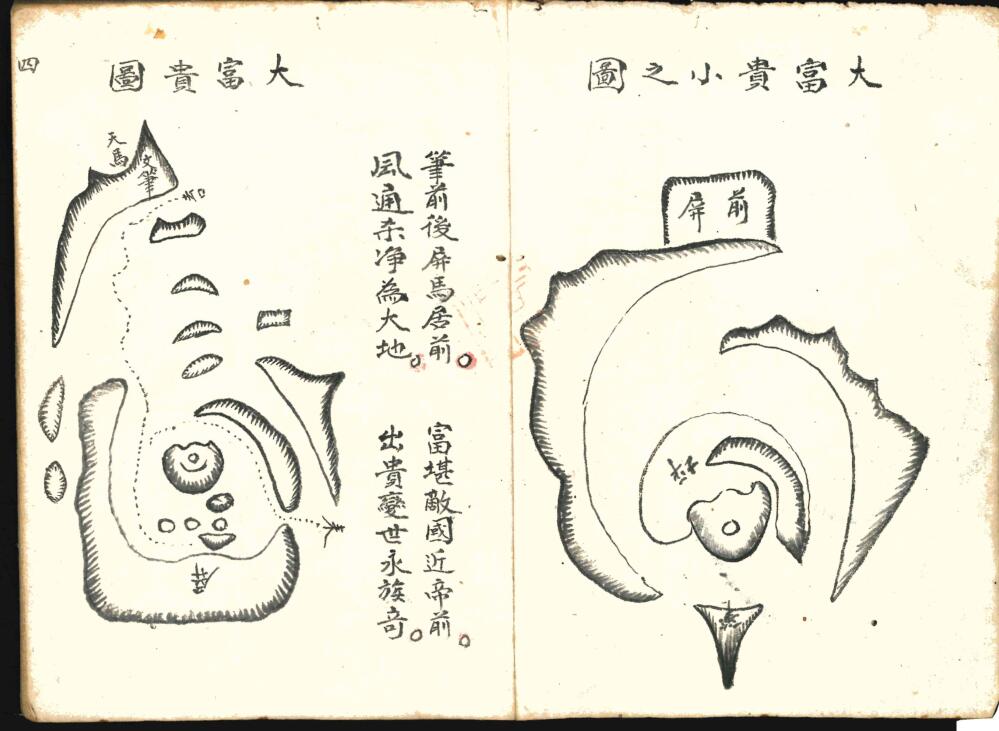 大富貴小之圖
前
屏
大富貴圖
四
筆前後屏馬居前。
富堪敵國近帝前。
風通杀净為大地。
出貴變世永族奇。
天馬
文筆
屏
筆